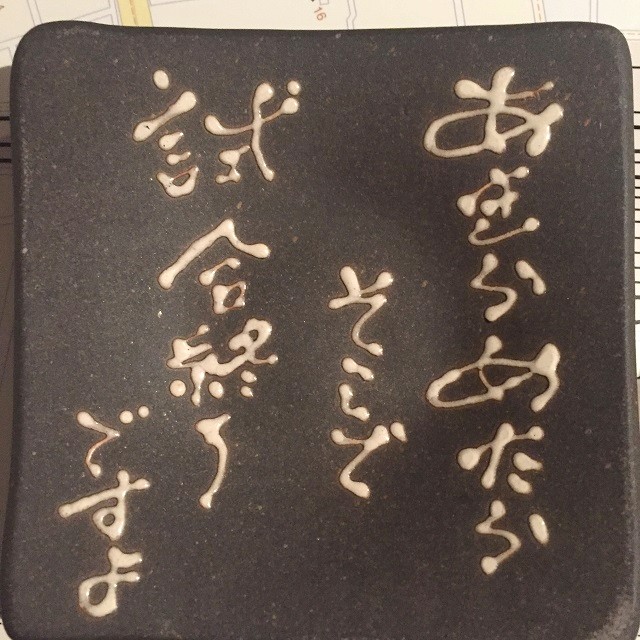 16
あきらめたら
そこで
試合終了
ですよ